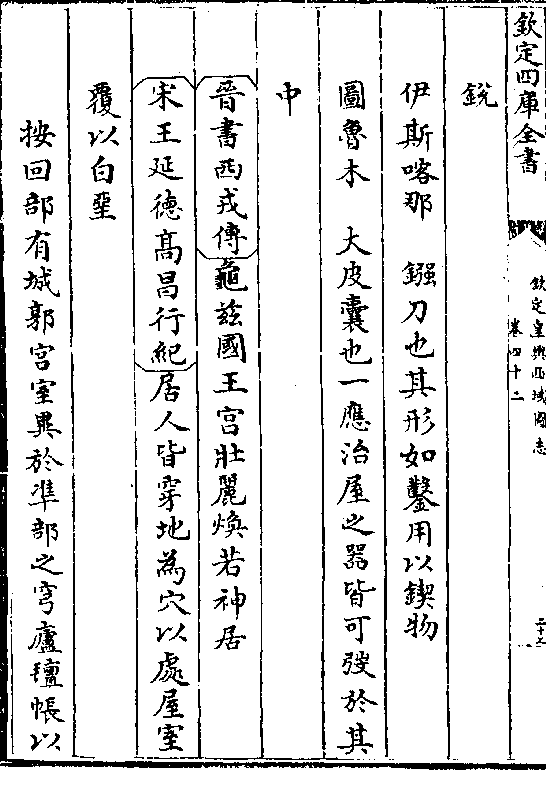 欽定四庫全書
欽定皇輿西域圖志
卷四十二
銳
伊斯喀那　鏹刀也其形如鑿用以鍥物
圖魯木　大皮囊也一應治屋之器皆可發於其
中
晉書西戎傳龜兹國王宫壯麗煥若神居
宋王延德髙昌行紀居人皆穿地為穴以處屋室
覆以白堊
按回部有城郭宫室異於準部之穹廬氊帳以